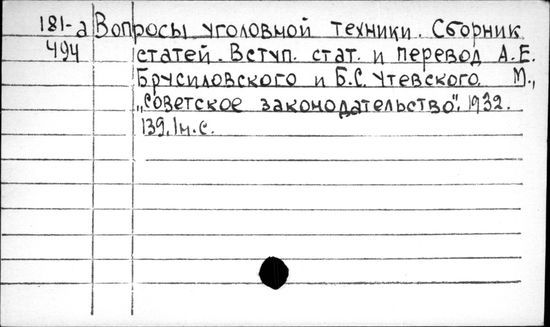 181-а Вопросы уголовной техники. Сборник
494 статей. Вступ. стат. и перевод А.Е.
Брусиловского и Б.С. Утевского. М.,
„Советское законодательство". 1932.
139, 1 н. с.